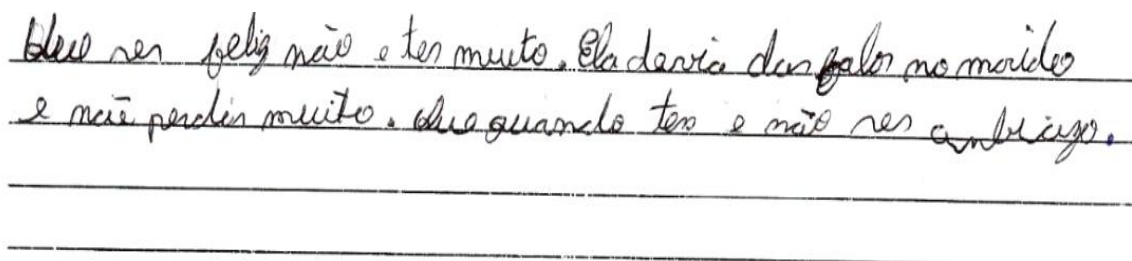 Que ser feliz não e ter muito. Ela devia dar valor no marido
e não perdir muito. Que quando ter e não ser ambiazo.